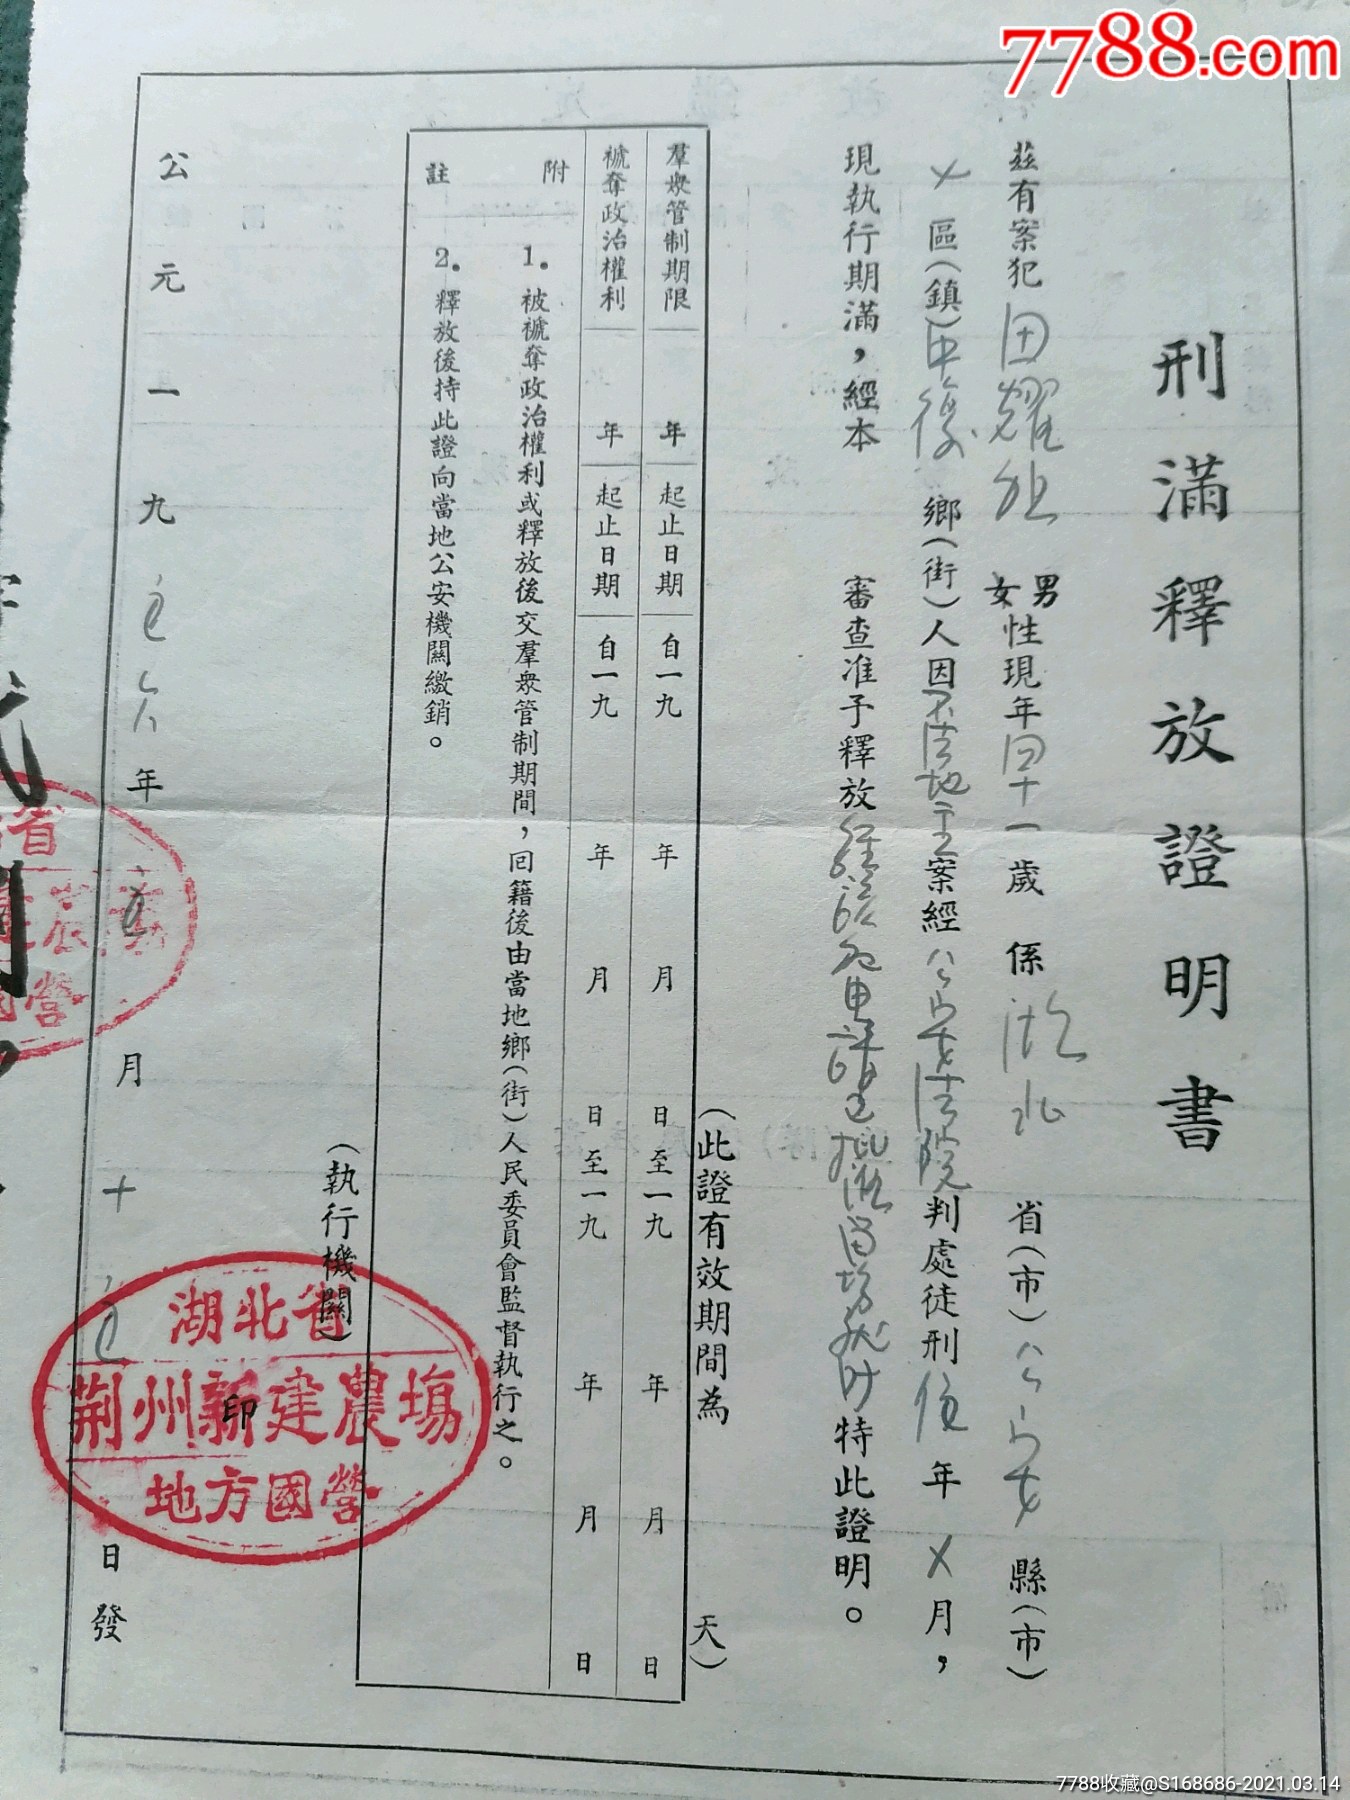 7788.com
刑滿釋放證明書
茲有案犯田耀 男女性現年四十一歲 係湖北 省(市)公安 縣(市)
×區(鎮)中復 鄉(街)人因不法地主案經公安法院判處徒刑伍年×月，
現執行期滿，經本 審查准予釋放 特此證明。
(此證有效期間為 天)
羣衆管制期限 年 起止日期 自一九 年 月 日至一九 年 月 日
褫奪政治權利 年 起止日期 自一九 年 月 日至一九 年 月 日
附 1.被褫奪政治權利或釋放後交羣衆管制期間，回籍後由當地鄉(街)人民委員會監督執行之。
註 2.釋放後持此證向當地公安機關繳銷。
(執行機關)
印
湖北省
荆州新建農場
地方國營
公元一九五六年五月十五日發
省
農場
營
7788收藏@S168686-2021.03.14